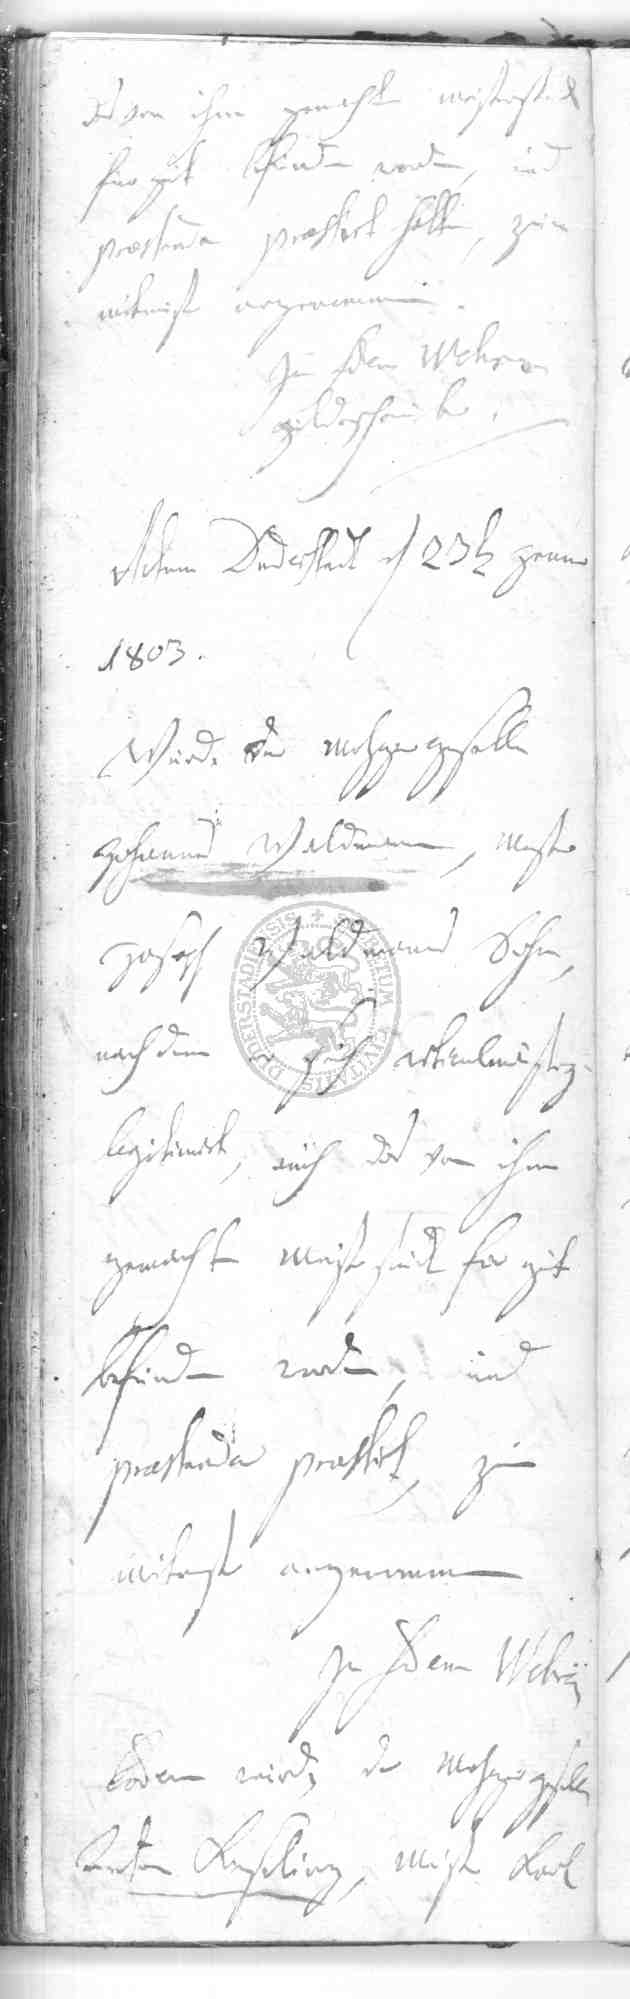 das von ihm gemachte meisterstück
für gut befunden worden, und
praestanda praestirt hatte, zum
mitmeister angenommen.
In fidem
gildeschreiber.
Actum Duderstadt d 23t
1803.
Wurde der Metzgergeselle
Johannes Waldmann, Meister
Joseph Waldmanns Sohn,
nachdem er sich articulmäßig
legitimirt, auch das von ihm
gemachte Meisterstück für gut
befunden worden, und
praestanda praestirt, zum
mitmeister angenommen
In fidem
Eodem wurde der Metzgergeselle
Anton, Meister Karl
SIGILLUM CIVITATIS DUDERSTADIENSIS